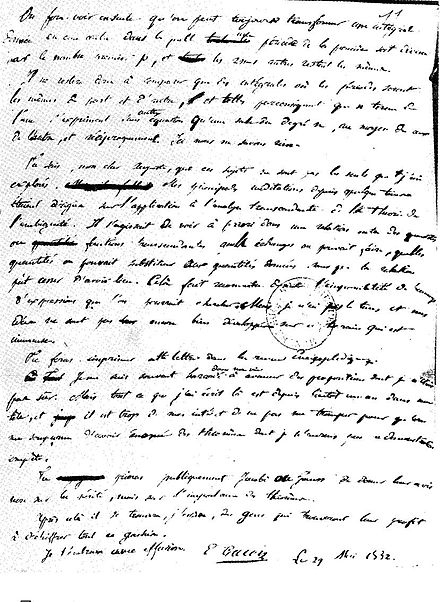 11
On fera voir ensuite qu'on peut toujours transformer une intégrale
donnée en une autre dans laquelle une période de la première soit divisée
par le nombre premier p, et les 2n-1 autres restent les mêmes.
Il ne restera donc à comparer que des intégrales où les périodes seront
les mêmes de part et d'autre, et telles par conséquent que n termes de
l'une s'expriment sans autre équation qu'une seule du degré n, au moyen de ceux
de l'autre, et réciproquement. Ici nous ne savons rien.
Tu sais, mon cher Auguste, que ces sujets ne sont pas les seuls que j'aie
explorés. Mes principales méditations depuis quelque temps
étaient dirigées sur l'application à l'analyse transcendante de la théorie de
l'ambiguité. Il s'agissait de voir à priori dans une relation entre des quantités
ou fonctions transcendantes quels échanges on pouvait faire, quelles
quantités on pouvait substituer aux quantités données sans que la relation
pût cesser d'avoir lieu. Cela fait reconnaitre l'impossibilité de beaucoup
d'expressions que l'on pourrait chercher. Mais je n'ai pas le temps et mes
idées ne sont pas encore bien développées sur ce terrain qui est
immense.
Tu feras imprimer cette lettre dans la revue Encyclopédique.
Je me suis souvent hasardé dans ma vie à avancer des propositions dont je n'étais
pas sûr. Mais tout ce que j'ai écrit là est depuis bientôt un an dans ma
tête, et il est trop de mon intérêt de ne pas me tromper pour qu'on
me soupçonne d'avoir énoncé des théorèmes dont je n'aurais pas la démonstration
complète.
Tu prieras publiquement Jacobi ou Gauss de donner leur avis
non sur la vérité, mais sur l'importance des théorèmes.
Après cela il se trouvera, j'espère, des gens qui trouveront leur profit
à déchiffrer tout ce gachis.
Je t'embrasse avec effusion. E Galois Le 29 Mai 1832.